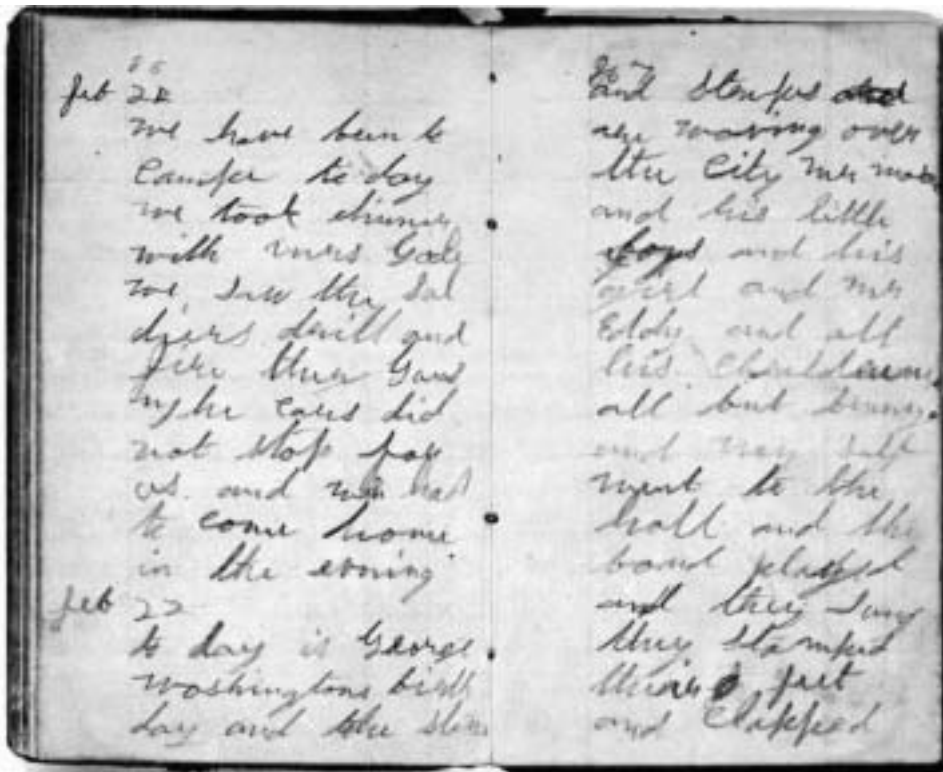 66
feb 21
we have been to
Camp to day
we took dinner
with mrs Gale
we saw the Sol
diers drill and
fire ther Gans
the Cars did
not stop for
us. and we had
to come home
in the evning
feb 22
to day is George
washingtons birth
day and the stars
67
and Stripes
are waving over
the City mr
and his little
boys and his
girl and mr
Eddy and all
his Children
all but
and my self
went to the
hall and the
band played
and they Sung
they Stamped
feet
and Clapped